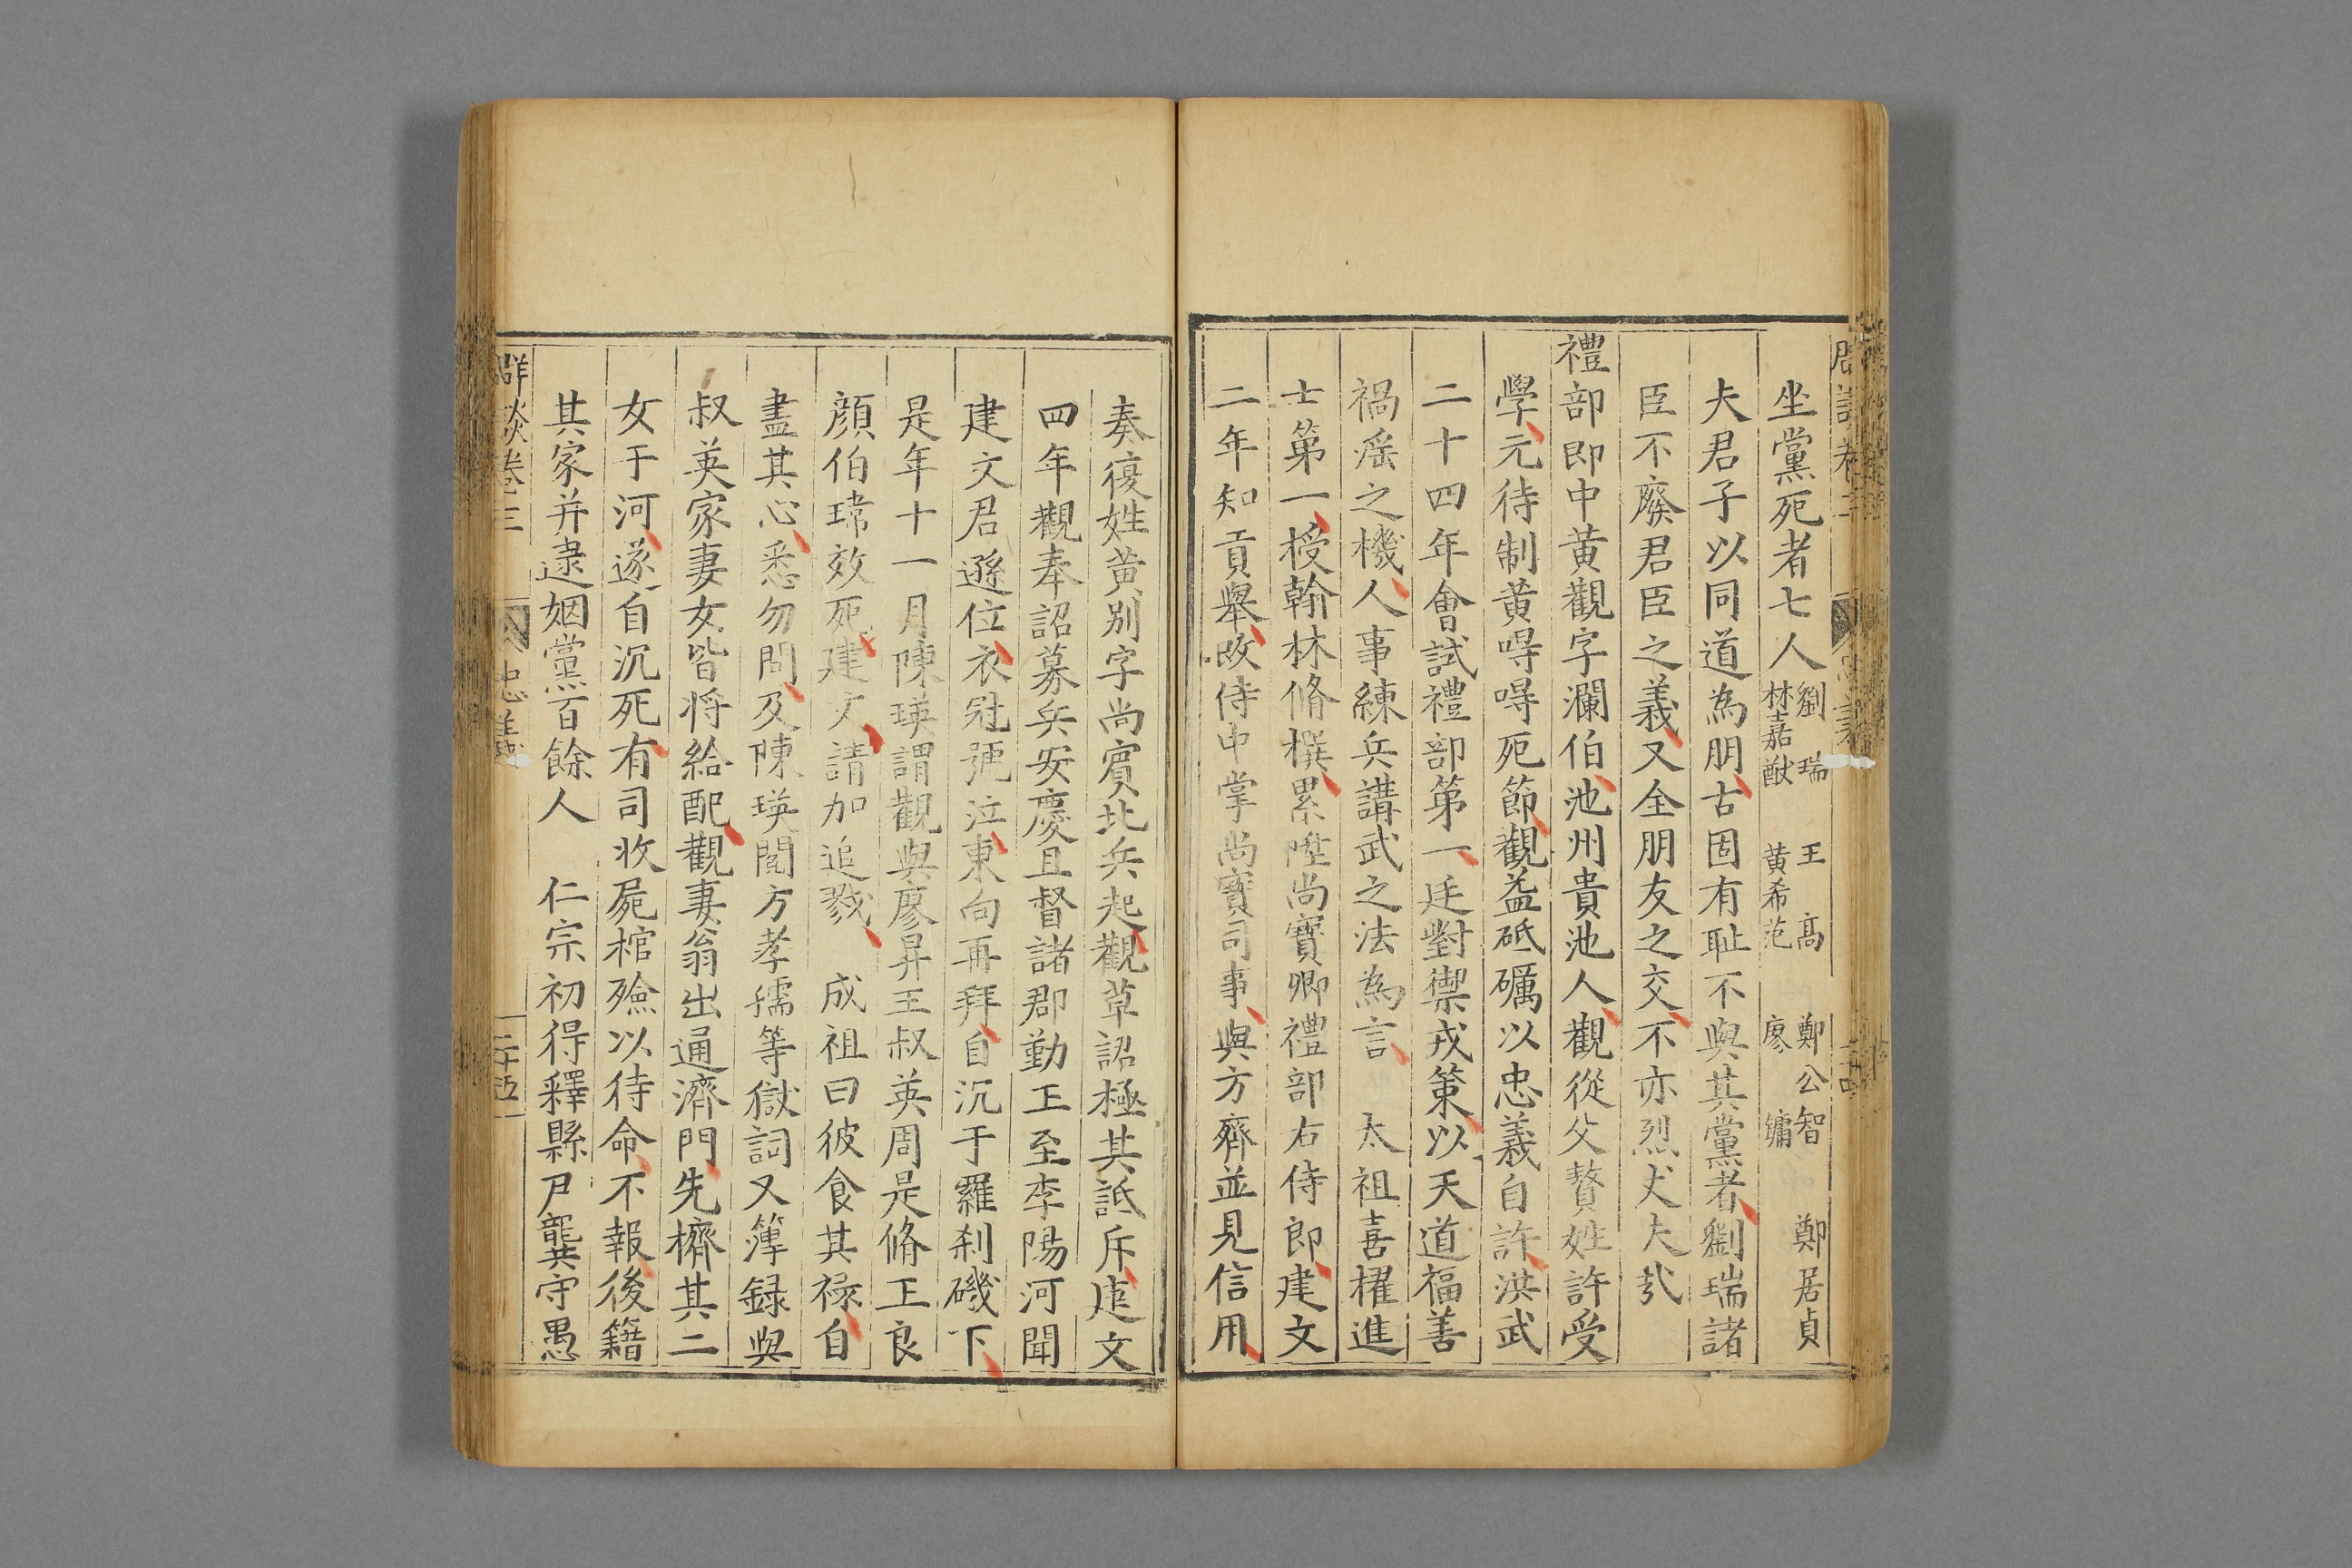 坐黨死者七人劉瑞 林嘉猷 王高 黃希范 鄭公智 廖鏞 鄭居貞
夫君子以同道為朋古固有耻不與其黨者劉瑞諸
臣不廢君臣之義又全朋友之交不亦烈丈夫哉
禮部郎中黃觀字瀾伯池州貴池人觀從父贅姓許受
學元待制黃㝵㝵死節觀益砥礪以忠義自許洪武
二十四年會試禮部第一廷對禦戎策以天道福善
禍淫之機人事練兵講武之法為言 太祖喜擢進
士第一授翰林脩撰累陞尚寶卿禮部右侍郎建文
二年知貢舉改侍中掌尚寶司事與方齊並見信用
奏復姓黃別字尚賓北兵起觀草詔極其詆斥建文
四年觀奉詔募兵安慶且督諸郡勤王至李陽河聞
建文君遜位衣冠號泣東向再拜自沉于羅刹磯下
是年十一月陳瑛謂觀與廖昇王叔英周是脩王良
顏伯瑋效死建文請加追戮 成祖曰彼食其祿自
盡其心悉勿問及陳瑛閱方孝孺等獄詞又簿録與
叔英家妻女皆將給配觀妻翁出通濟門先擠其二
女于河遂自沉死有司收屍棺殮以待命不報後籍
其家并逮姻黨百餘人 仁宗初得釋縣尹龔守愚
群談卷三 忠義 二十五